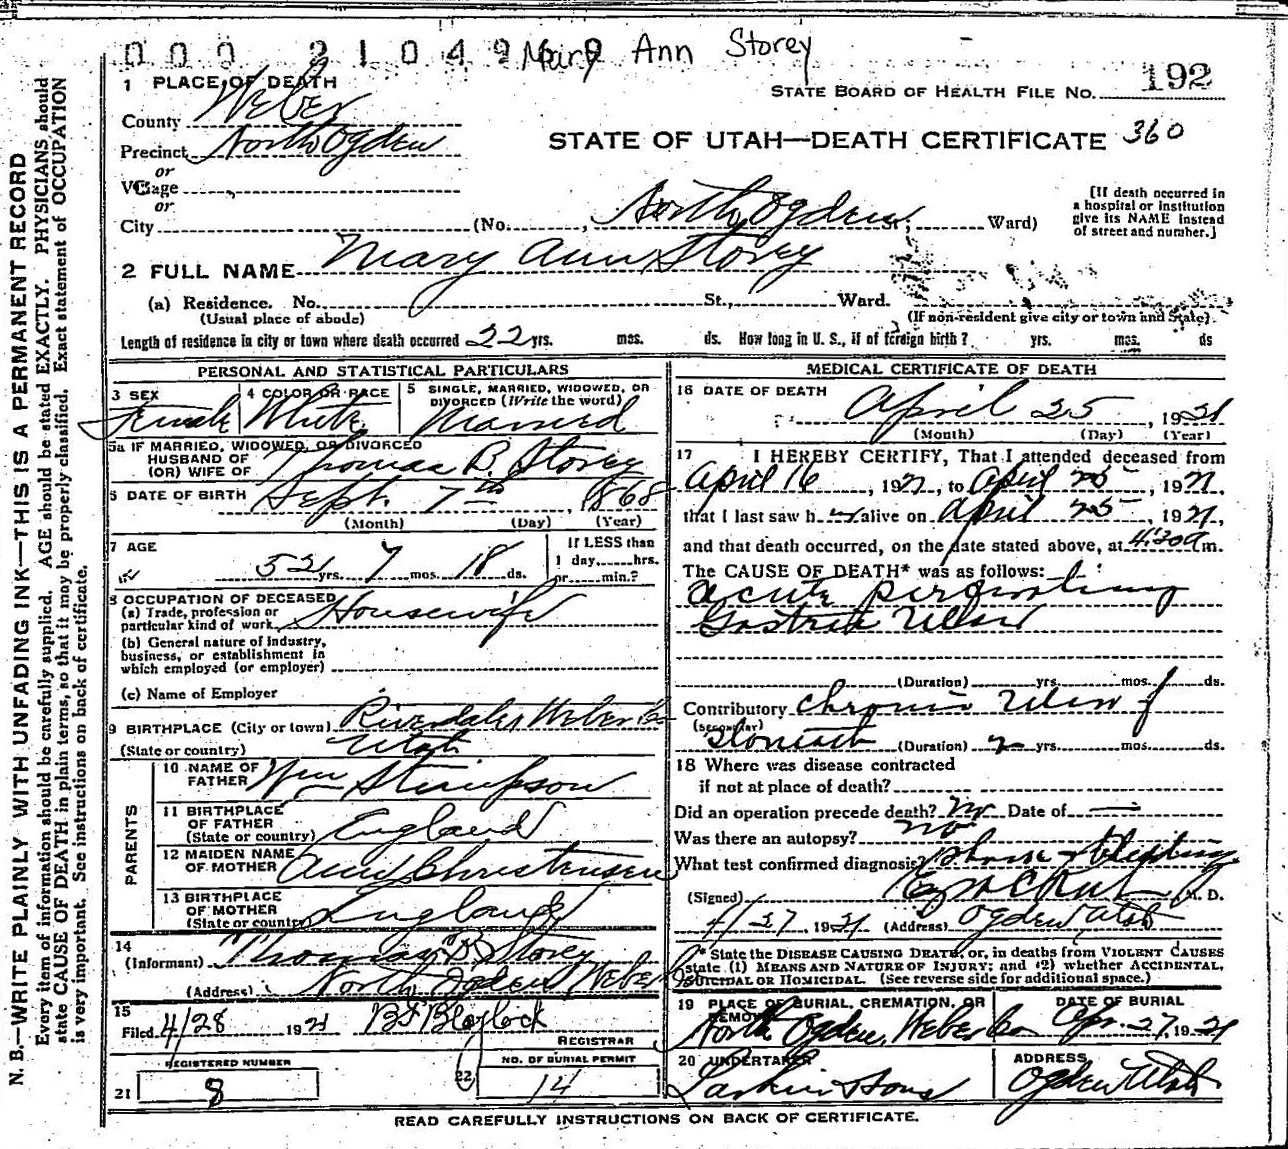 000 2104969 Mary Ann Storey
192
STATE BOARD OF HEALTH FILE NO.
STATE OF UTAH—DEATH CERTIFICATE 360
1 PLACE OF DEATH
County Weber
Precinct North Ogden
or
Village
or
City (No. North Ogden St., Ward)
[If death occurred in
a hospital or institution
give its NAME instead
of street and number.]
2 FULL NAME Mary Ann Storey
(a) Residence. No. St., Ward.
(Usual place of abode) (If non-resident give city or town and State)
Length of residence in city or town where death occurred 22 yrs. mos. ds. How long in U. S., if of foreign birth? yrs. mos. ds
PERSONAL AND STATISTICAL PARTICULARS
3 SEX 4 COLOR OR RACE 5 SINGLE, MARRIED, WIDOWED, OR
DIVORCED (Write the word)
Female White Married
5a IF MARRIED, WIDOWED, OR DIVORCED
HUSBAND OF
(OR) WIFE OF Thomas B. Storey
6 DATE OF BIRTH Sept. 7th, 1868
(Month) (Day) (Year)
7 AGE If LESS than
1 day, hrs.
52 yrs. 7 mos. 18 ds. or min.?
8 OCCUPATION OF DECEASED
(a) Trade, profession or
particular kind of work Housewife
(b) General nature of industry,
business, or establishment in
which employed (or employer)
(c) Name of Employer
9 BIRTHPLACE (City or town) Riverdale Weber Co
(State or country) Utah
PARENTS
10 NAME OF
FATHER Wm Stimpson
11 BIRTHPLACE
OF FATHER
(State or country) England
12 MAIDEN NAME
OF MOTHER Ann Christensen
13 BIRTHPLACE
OF MOTHER
(State or country) England
14
(Informant) Thomas B Storey
(Address) North Ogden Weber Co
15
Filed 4/28 1921 BF Blaylock
REGISTRAR
REGISTERED NUMBER
21 8
NO. OF BURIAL PERMIT
22 14
MEDICAL CERTIFICATE OF DEATH
16 DATE OF DEATH April 25, 1921
(Month) (Day) (Year)
17 I HEREBY CERTIFY, That I attended deceased from
April 16, 1921, to April 25, 1921,
that I last saw her alive on April 25, 1921,
and that death occurred, on the date stated above, at 4:30 a m.
The CAUSE OF DEATH* was as follows:
Acute perforating
Gastric Ulcer
(Duration) yrs. mos. ds.
Contributory Chronic Ulcer of
(SECONDARY)
Stomach (Duration) 2 yrs. mos. ds.
18 Where was disease contracted
if not at place of death?
Did an operation precede death? No Date of
Was there an autopsy? no
What test confirmed diagnosis?
(Signed) M. D.
4/27 1921 (Address) Ogden Utah
* State the DISEASE CAUSING DEATH, or, in deaths from VIOLENT CAUSES
state (1) MEANS AND NATURE OF INJURY; and (2) whether ACCIDENTAL,
SUICIDAL OR HOMICIDAL. (See reverse side for additional space.)
19 PLACE OF BURIAL, CREMATION, OR
REMOVAL DATE OF BURIAL
North Ogden, Weber Co Apr. 27, 1921
20 UNDERTAKER ADDRESS
Larkin & Sons Ogden Utah
READ CAREFULLY INSTRUCTIONS ON BACK OF CERTIFICATE.
N. B.—WRITE PLAINLY WITH UNFADING INK—THIS IS A PERMANENT RECORD
Every item of information should be carefully supplied. AGE should be stated EXACTLY. PHYSICIANS should
state CAUSE OF DEATH in plain terms, so that it may be properly classified. Exact statement of OCCUPATION
is very important. See instructions on back of certificate.